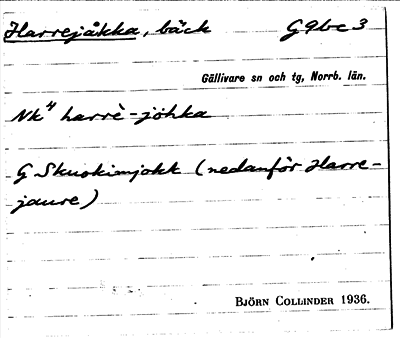 Harrejåkka, bäck G9bc3
Gällivare sn och tg, Norrb. län.
Nk" harrè-jöhka
G Skuokimjokk (nedanför Harre-
jaure)
BJÖRN COLLINDER 1936.